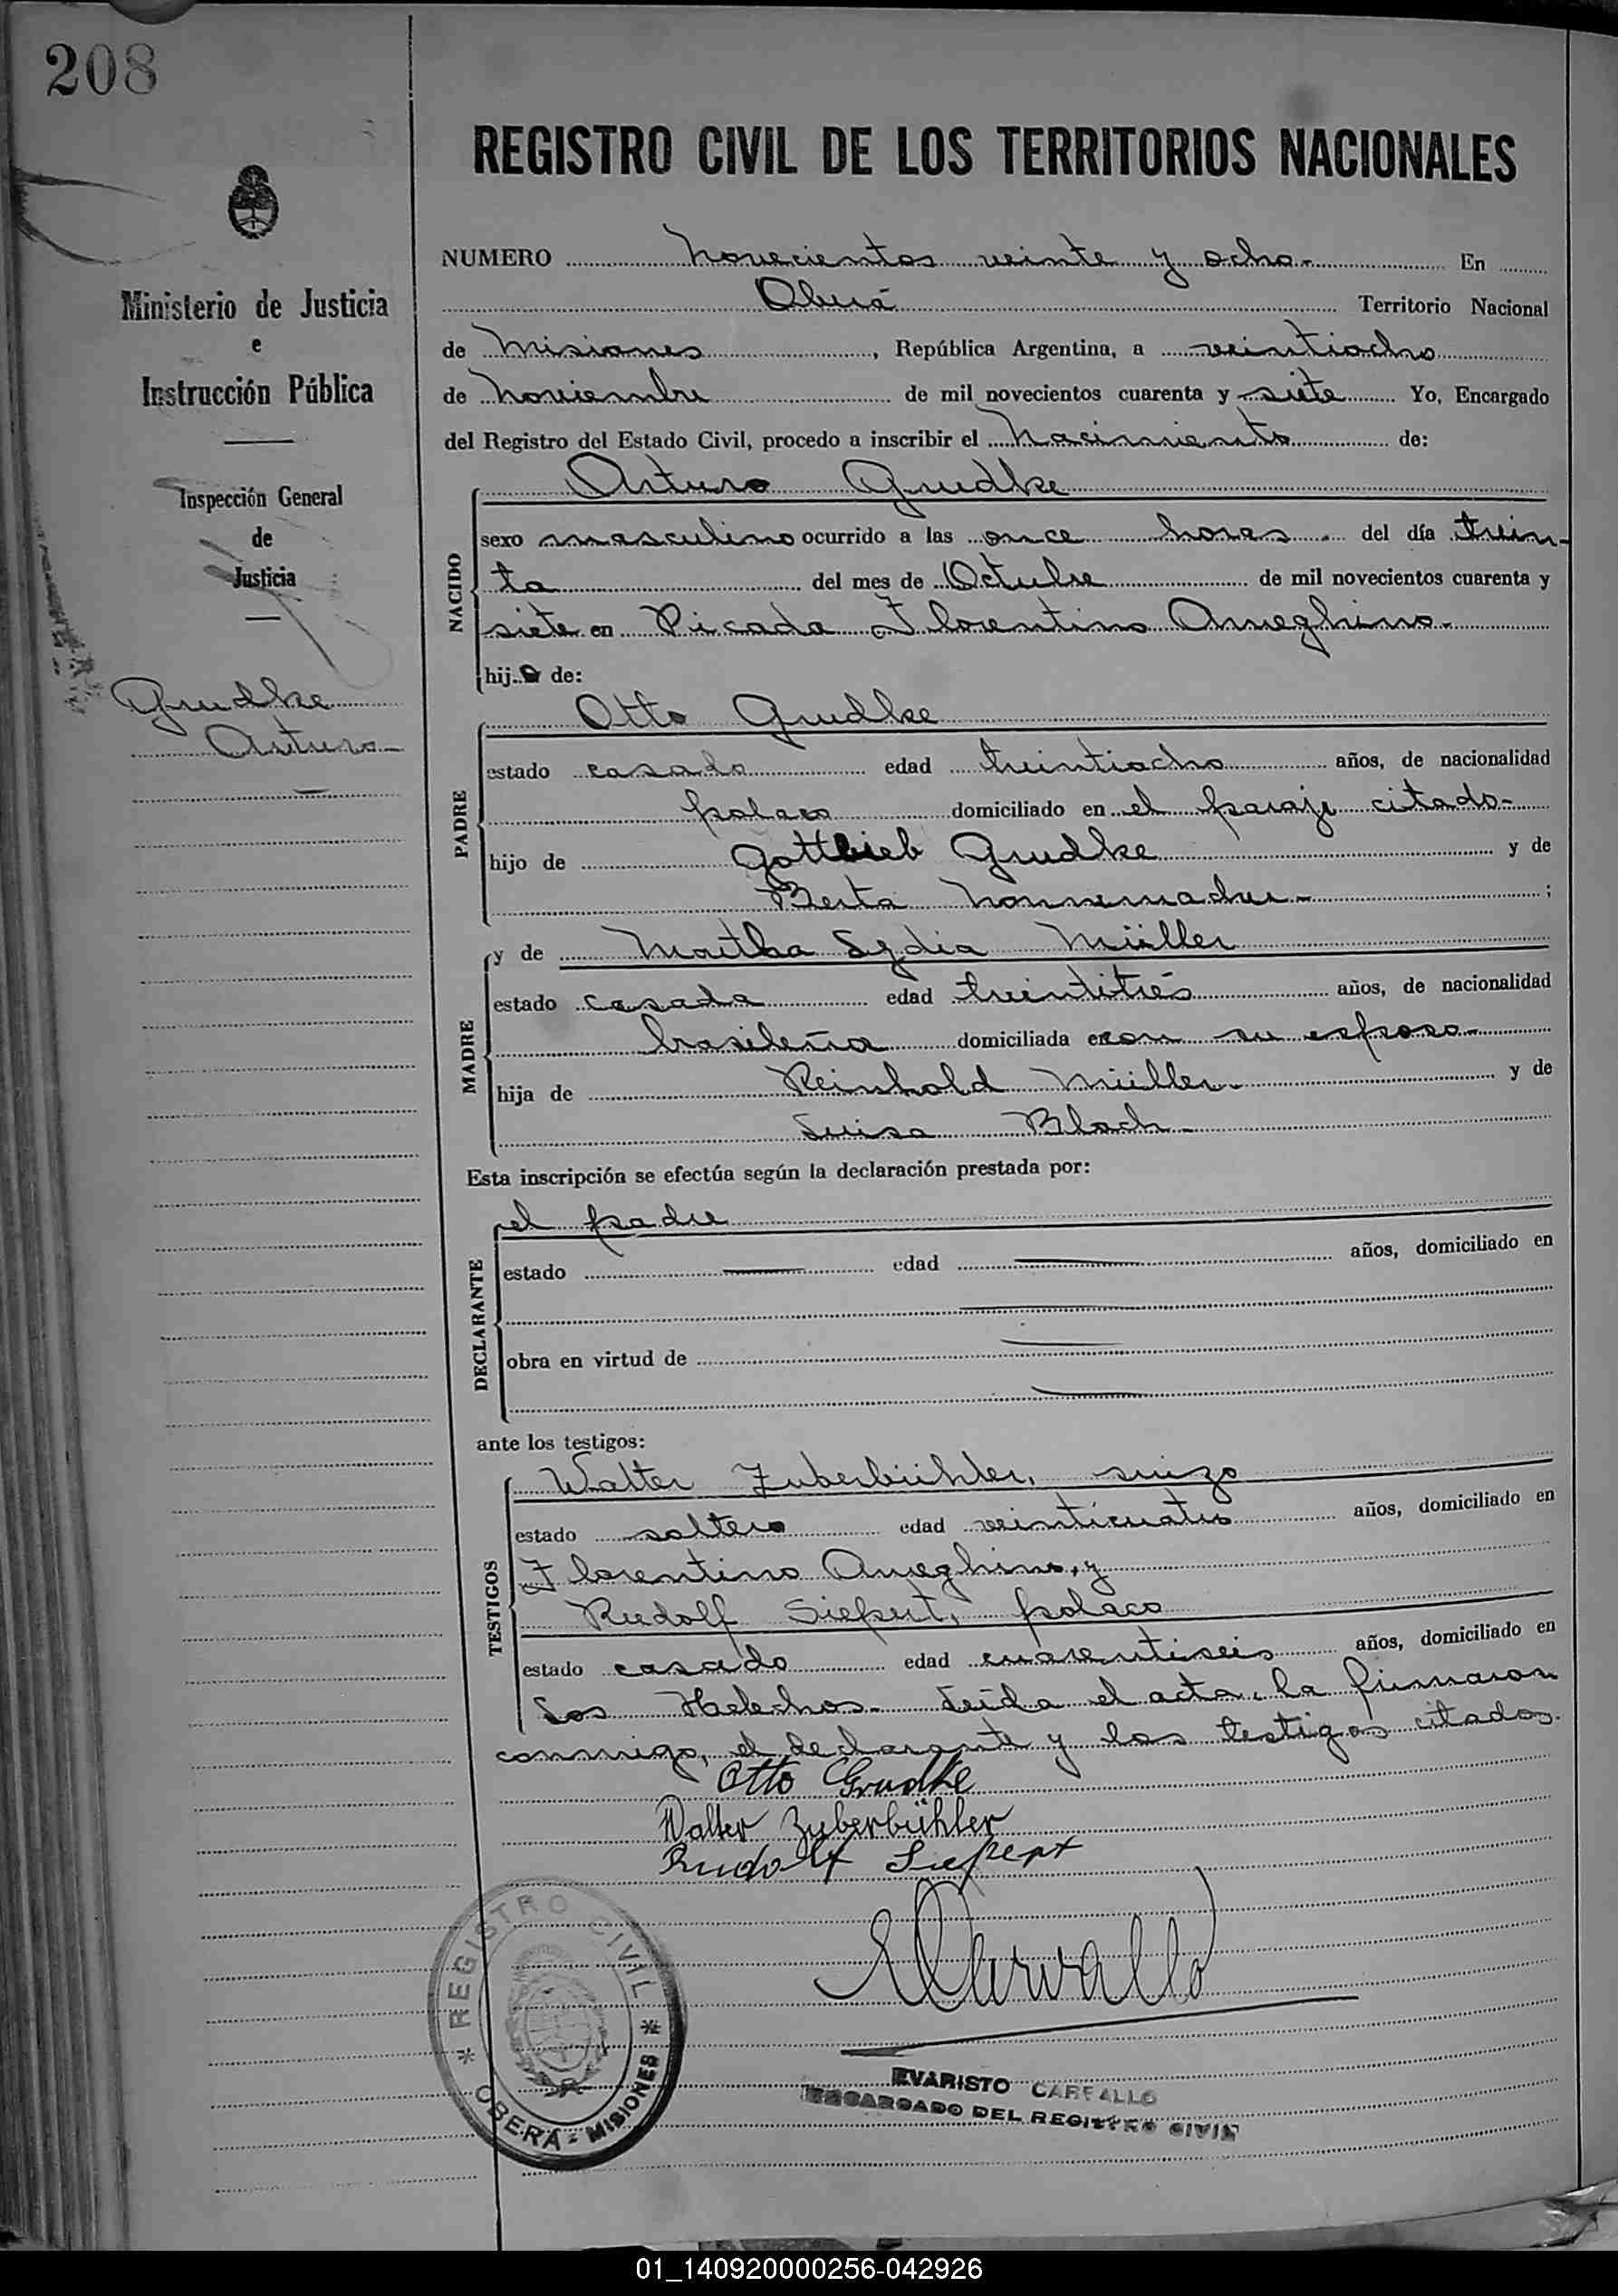 208
REGISTRO CIVIL DE LOS TERRITORIOS NACIONALES
Ministerio de Justicia
e
Instrucción Pública
Inspección General
de
Justicia
Grudke
Arturo
NUMERO novecientos veinte y ocho- En
Oberá Territorio Nacional
de Misiones, República Argentina, a veintiocho
de noviembre de mil novecientos cuarenta y siete Yo, Encargado
del Registro del Estado Civil, procedo a inscribir el nacimiento de:
NACIDO
Arturo Grudke
sexo masculino ocurrido a las once horas. del día trein-
ta del mes de Octubre de mil novecientos cuarenta y
siete en Picada Florentino Ameghino.
hijo de:
PADRE
Otto Grudke
estado casado edad treintiocho años, de nacionalidad
polaco domiciliado en el paraje citado-
hijo de Gottlieb Grudke y de
Berta ;
MADRE
y de Martha Lydia Müller
estado casada edad treintitrés años, de nacionalidad
brasileña domiciliada con su esposo-
hija de Reinhold Müller- y de
Luisa Bloch-
Esta inscripción se efectúa según la declaración prestada por:
DECLARANTE
el padre
estado edad años, domiciliado en
obra en virtud de
ante los testigos:
TESTIGOS
Walter Zuberbühler, suizo
estado soltero edad veinticuatro años, domiciliado en
Florentino Ameghino, y
Rudolf Siepert, polaco
estado casado edad cuarentiseis años, domiciliado en
Los Helechos- Leída el acta, la firmaron
conmigo, el declarante y los testigos citados.
Otto Grudke
Walter Zuberbühler
Rudolf Siepert
ECarvallo
* REGISTRO CIVIL *
OBERÁ - MISIONES
EVARISTO CARVALLO
ENCARGADO DEL REGISTRO CIVIL
01_140920000256-042926